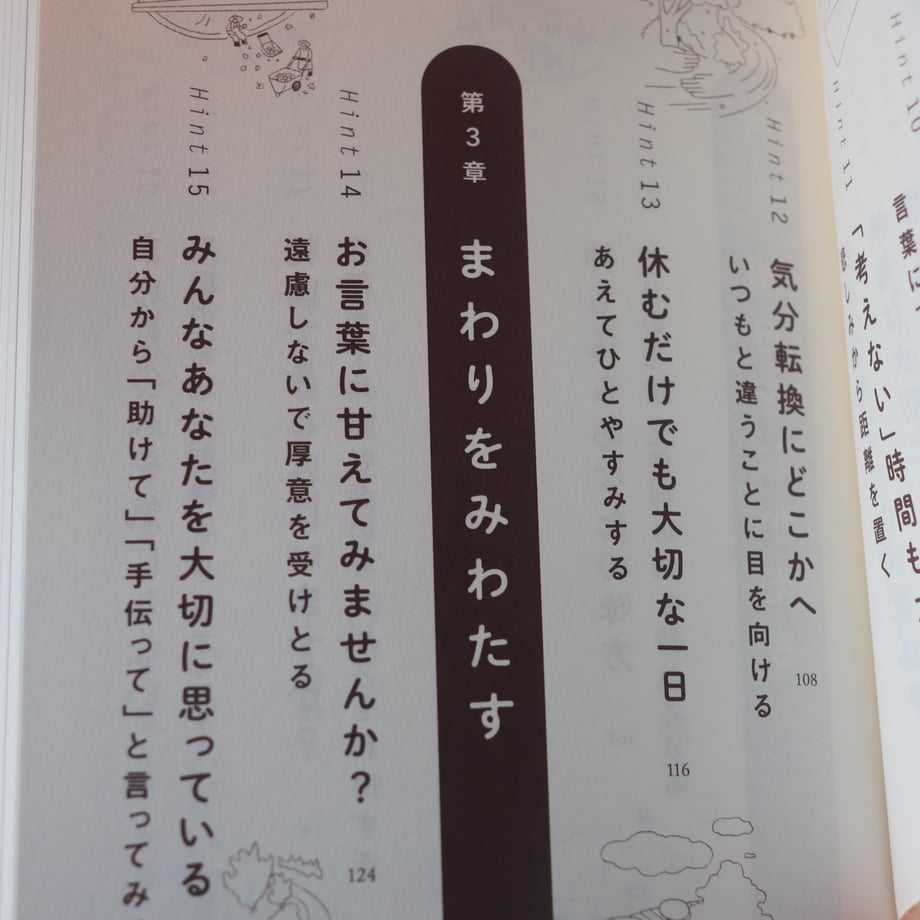 Hint 10
言葉に
Hint 11
「考えない」時間も
しみから距離を置く
Hint 12
気分転換にどこかへ
108
いつもと違うことに目を向ける
Hint 13
休むだけでも大切な一日
116
あえてひとやすみする
第3章 まわりをみわたす
Hint 14
お言葉に甘えてみませんか？
124
遠慮しないで厚意を受けとる
Hint 15
みんなあなたを大切に思っている
自分から「助けて」「手伝って」と言ってみ